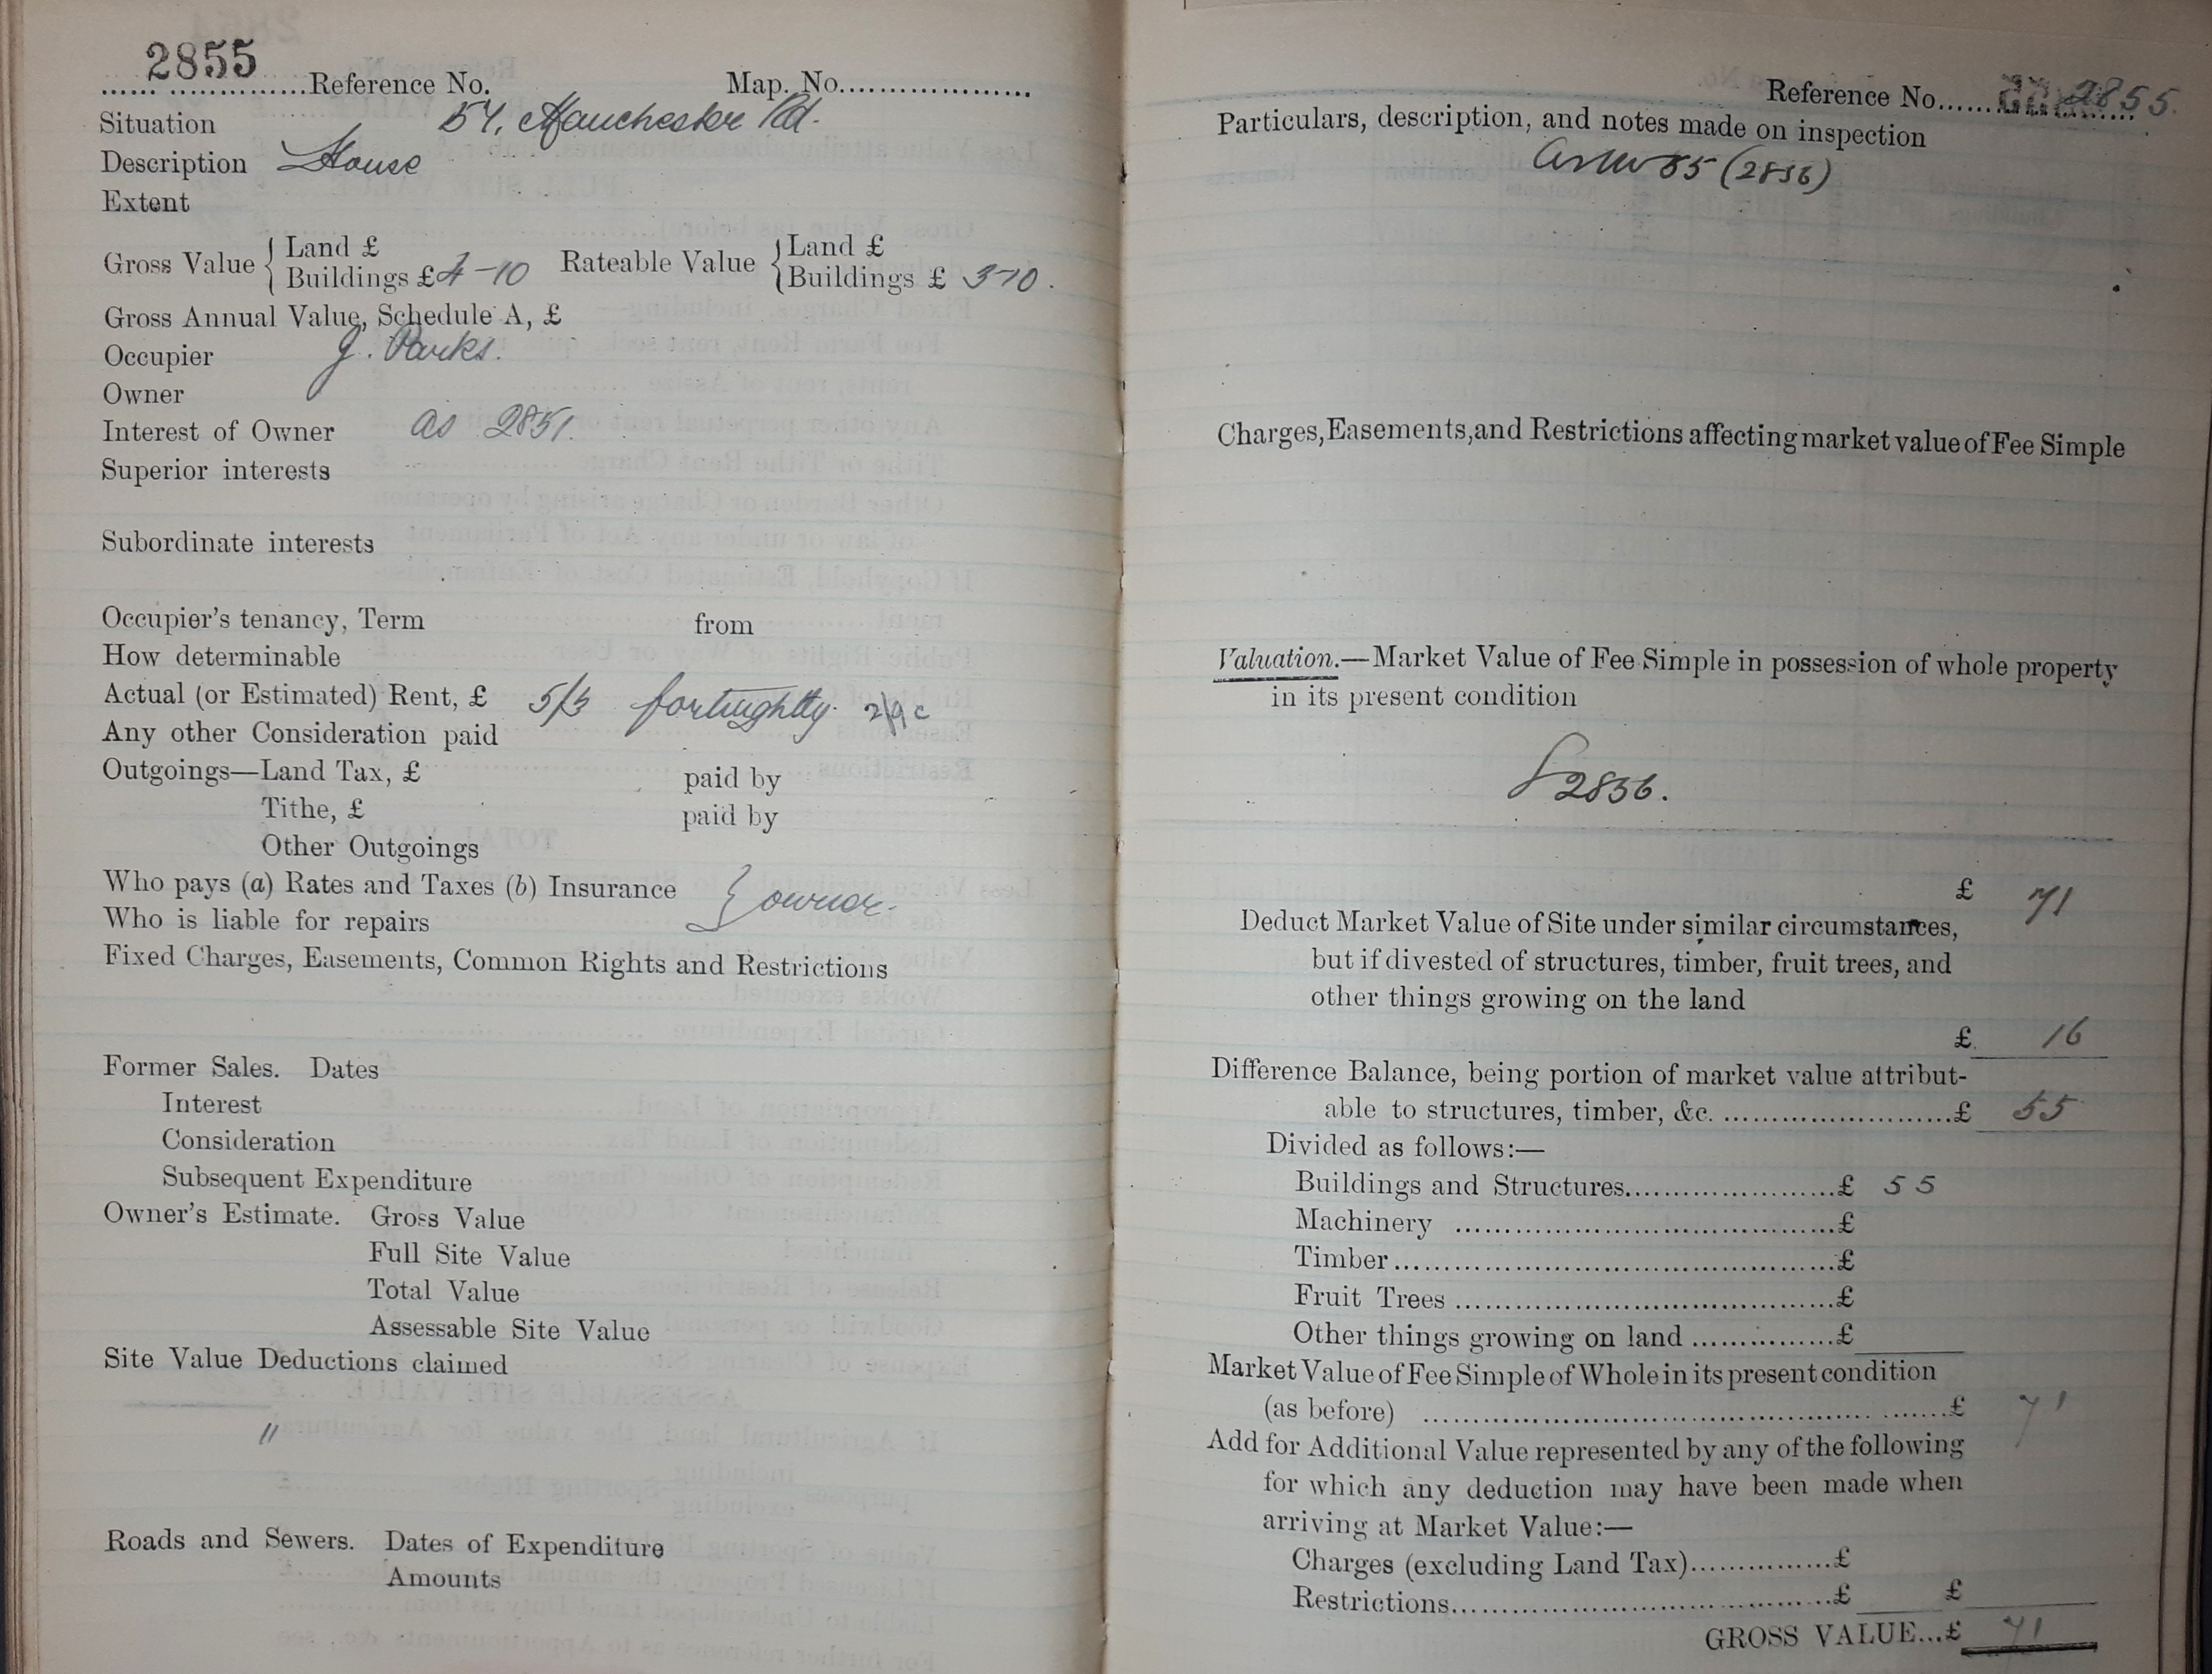 2855
Reference No. Map. No.
Situation 54, Manchester Rd.
Description House
Extent
Gross Value { Land £
Buildings £ 4-10
Rateable Value { Land £
Buildings £ 3-10.
Gross Annual Value, Schedule A, £
Occupier J. Parks.
Owner
Interest of Owner as 2851.
Superior interests
Subordinate interests
Occupier's tenancy, Term from
How determinable
Actual (or Estimated) Rent, £ 5/3 fortnightly. 2/9
Any other Consideration paid
Outgoings—Land Tax, £ paid by
Tithe, £ paid by
Other Outgoings
Who pays (a) Rates and Taxes (b) Insurance } owner.
Who is liable for repairs
Fixed Charges, Easements, Common Rights and Restrictions
Former Sales. Dates
Interest
Consideration
Subsequent Expenditure
Owner's Estimate. Gross Value
Full Site Value
Total Value
Assessable Site Value
Site Value Deductions claimed
"
Roads and Sewers. Dates of Expenditure
Amounts
Reference No. 2855.
Particulars, description, and notes made on inspection
85 (2856)
Charges, Easements, and Restrictions affecting market value of Fee Simple
Valuation.—Market Value of Fee Simple in possession of whole property
in its present condition
2856.
£ 71
Deduct Market Value of Site under similar circumstances,
but if divested of structures, timber, fruit trees, and
other things growing on the land
£ 16
Difference Balance, being portion of market value attribut-
able to structures, timber, &c. £ 55
Divided as follows:—
Buildings and Structures £ 55
Machinery £
Timber £
Fruit Trees £
Other things growing on land £
Market Value of Fee Simple of Whole in its present condition
(as before) £ 71
Add for Additional Value represented by any of the following
for which any deduction may have been made when
arriving at Market Value:—
Charges (excluding Land Tax) £
Restrictions £ £
GROSS VALUE...£ 71